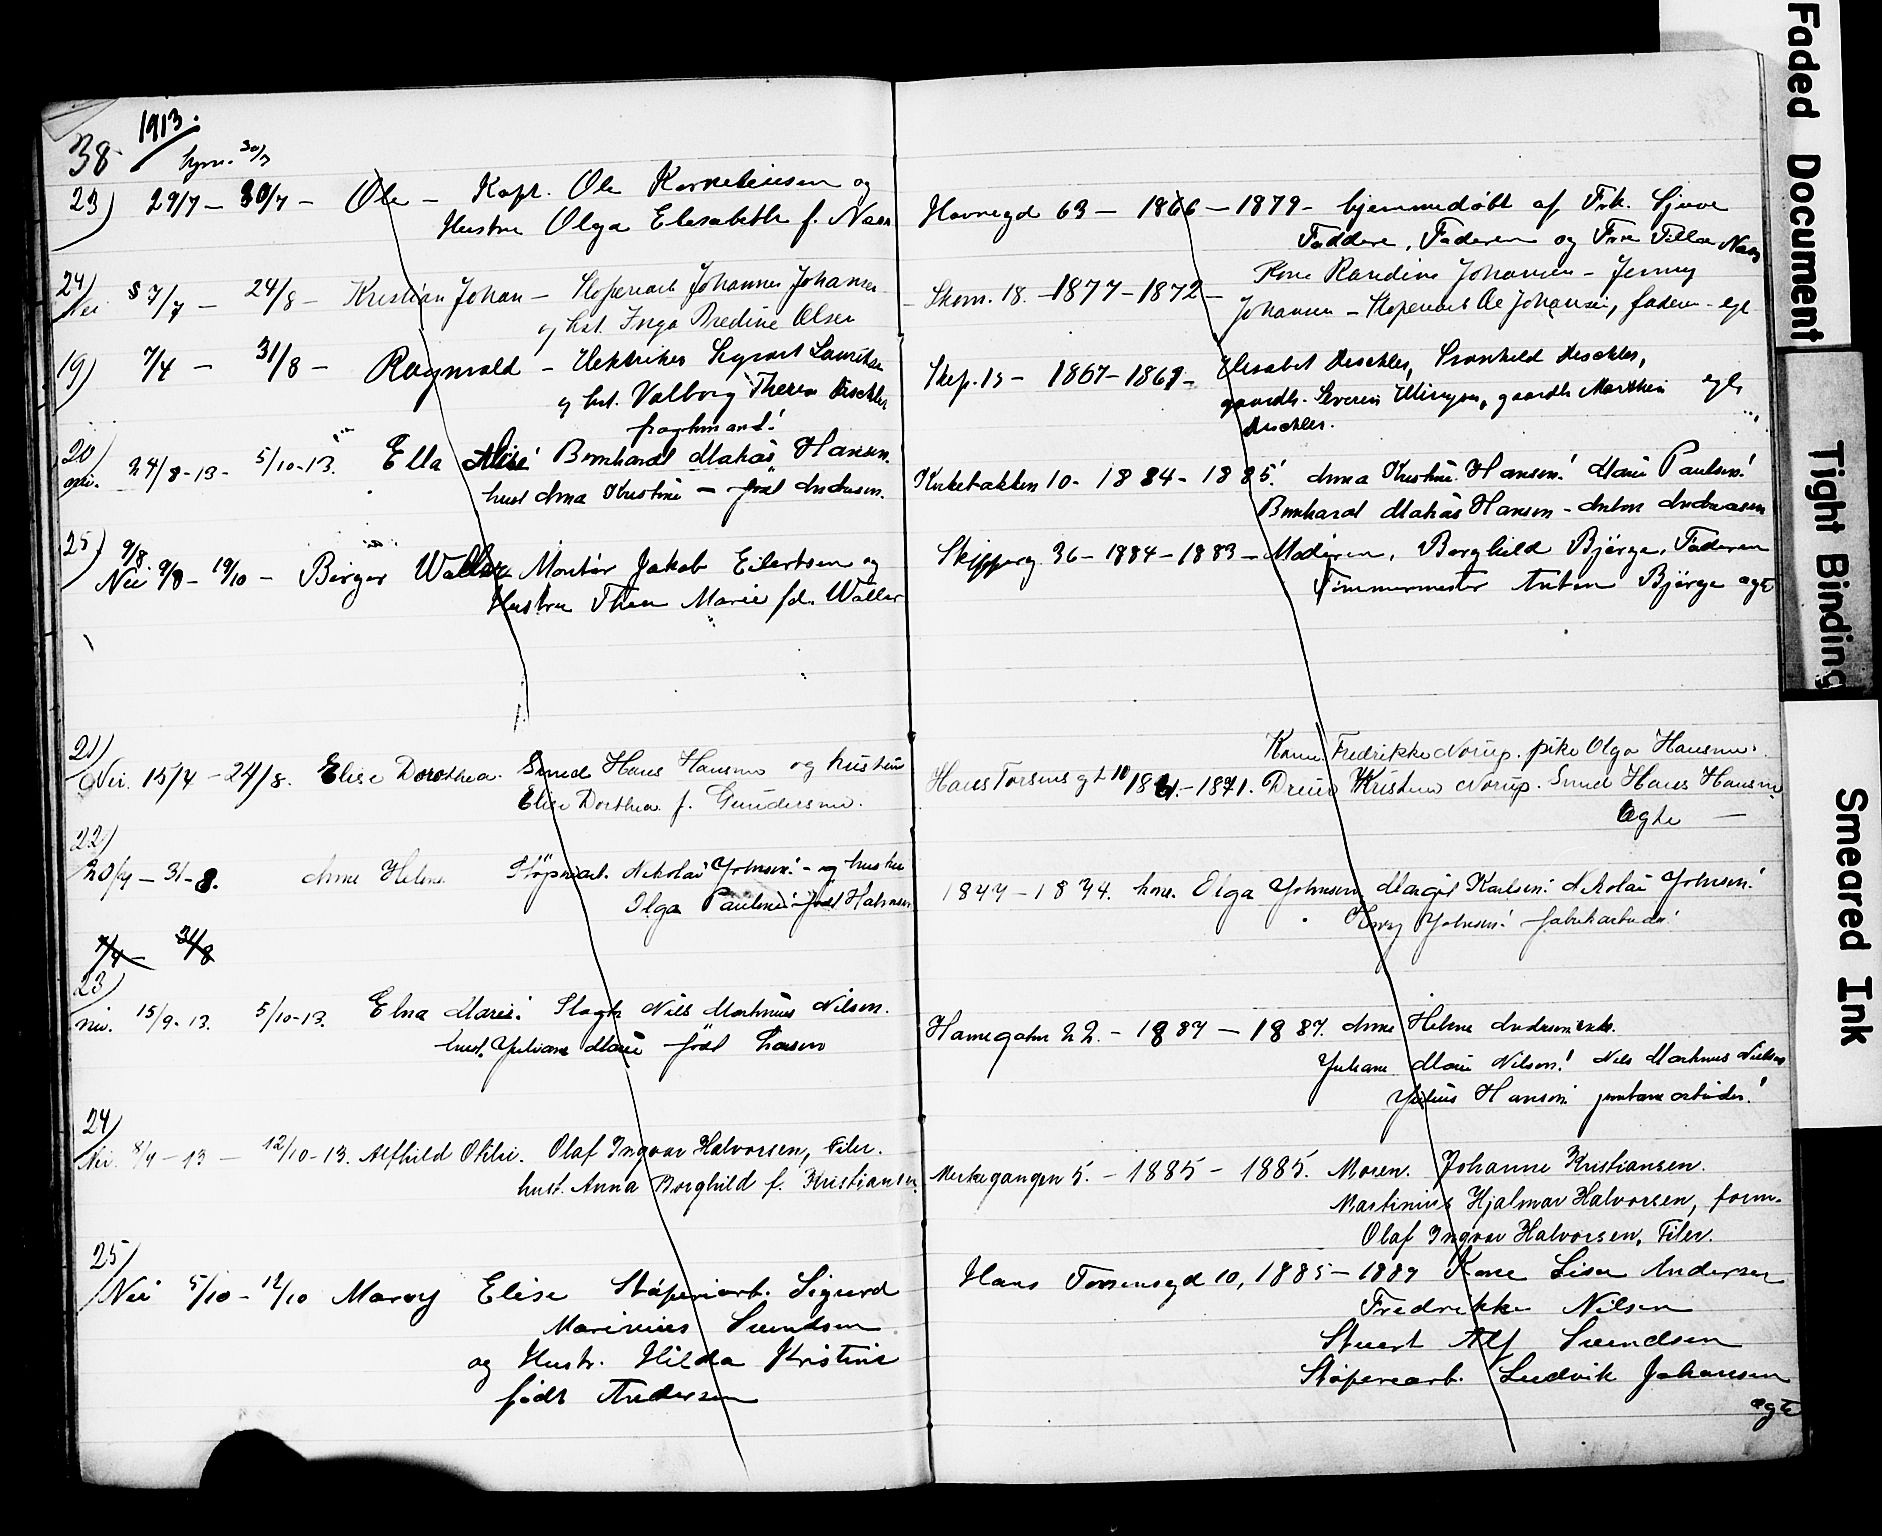 1913.
38
23) 29/7 — 30/7 — Ole — Kapt. Ole Korneliusen og
Hustru Olga Elesabeth f. Næss
Havnegd 63 — 1866 — 1879 - hjemmedøbt af Frk. Sjuve
Faddere, Faderen og Frk Tilla Næss
24) Nei 7/7 — 24/8 — Kristian Johan — Støperiarb Johannes Johansen
og hst. Inga Bredine Olsen
Skom. 18. — 1877 — 1872 — Kone Randine Johansen — Jenny
Johansen — Støperiarb Ole Johansen, faderen - egt
19) 7/4 — 31/8 — Ragnvald — Elektriker Sigvart Lauritsen
og hst. Valborg Theresa Dischler
Skip. 15 — 1867 — 1869 — Elisabet Dischler, Svanhild Dischler,
gaardb. Severin Ellingsen, gaardb Marthin egte
Dischler.
20 nei. 24/8-13 - 5/10-13. Ella Alise Bernhard Matias Hansen.
hust Anna Kristine — født Andersen.
Kirkebakken 10 - 1884 - 1885. Anna Kristine Hansen! Marie Paulsen!
Bernhard Matias Hansen - Anton Andreassen
25) 9/8
Nei 9/8 - 19/10 — Birger Waller Montør Jakob Eilertsen og
Hustru Thea Marie fd. Waller
Skippg. 36 — 1884 — 1883 — Moderen, Borghild Bjørge, Faderen
Tømmermester Anton Bjørge ægte
21)
Nei. 15/4 — 24/8. Elise Dorothea. Smed Hans Hansen og hustru
Elise Dorthea f. Gundersen.
Kone Fredrikke Norup. pike Olga Hansen.
Hans Torsens gt 10 1861. - 1871. Dreier Kristen Norup. Smed Hans Hansen
Ægte —
22)
20/4 — 31-8. Anne Helene Støperiarb. Nikolai Johnsen! — og hustru
Olga Pauline født Halvorsen
1847 — 1874. kone. Olga Johnsen Margit Karlsen! Nikolai Johnsen!
Henry Johnsen! fabrikarbeider!
7/4 — 31/8
23)
nei. 15/9-13. 5/10-13. Elna Marie! Slagter Nils Martinius Nilsen.
hust. Juliane Marie født Larsen
Havnegaten 22. — 1887 — 1887. Anne Helene Andersen enke.
Juliane Marie Nilsen! Nils Martinius Nielsen
Julius Hansen jernbanearbeider!
24)
Nei. 8/9 — 13 — 12/10-13. Alfhild Otilie. Olaf Ingvar Halvorsen, Filer.
hust. Anna Borghild f. Kristiansen.
Merkegangen 5. — 1885 — 1885. Moren. Johanne Kristiansen.
Martinius Hjalmar Halvorsen, form.
Olaf Ingvar Halvorsen, Filer.
25)
Nei 5/10 — 12/10 Marry Elise Støperiarb. Sigurd
Marinius Svendsen
og Hustr. Hilda Kristine
født Andersen
Hans Torsensgd 10, 1885 — 1889 Kone Lisa Andersen
Fredrikke Nilsen
Stuert Alf Svendsen
Støperiarb. Ludvik Johansen
ægte
Faded Document
Tight Binding
Smeared Ink